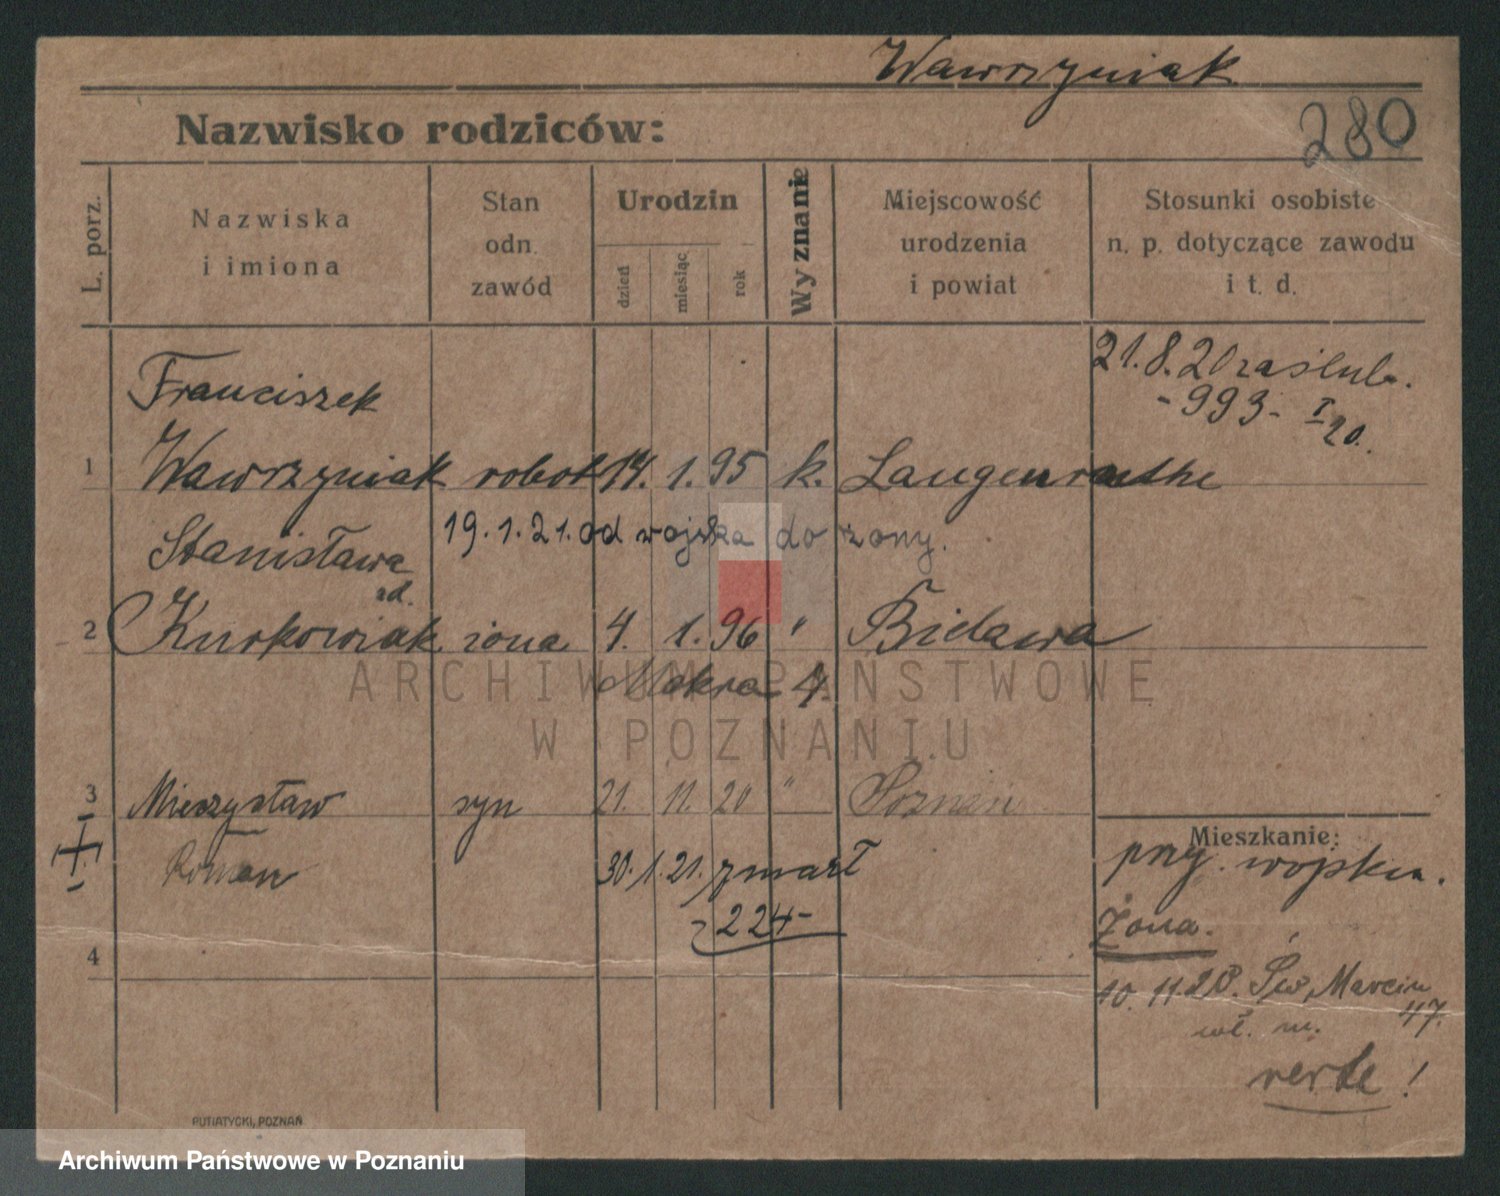 Wawrzyniak
Nazwisko rodziców:
280
L. porz.
Nazwiska
i imiona
Stan
odn.
zawód
Urodzin
dzień
miesiąc
rok
Wyznanie
Miejscowość
urodzenia
i powiat
Stosunki osobiste
n. p. dotyczące zawodu
i t. d.
Franciszek
21.8.20 zaślub.
-993- I
20.
1 Wawrzyniak robot 14. 1. 95 k.
19.1.21. od wojska do żony.
Stanisława
zd.
2 Kurkowiak żona 4. 1. 96 " Bielawa
Mokra 4.
ARCHIWUM PAŃSTWOWE
W POZNANIU
3 Mieczysław syn 21. 11. 20 " Poznań
Roman 30.1.21. zmarł
224-
4
Mieszkanie:
przy wojsku.
Żona.
10.11.20. Św. Marcin
47.
wł. m.
verte!
PUTIATYCKI, POZNAŃ
Archiwum Państwowe w Poznaniu